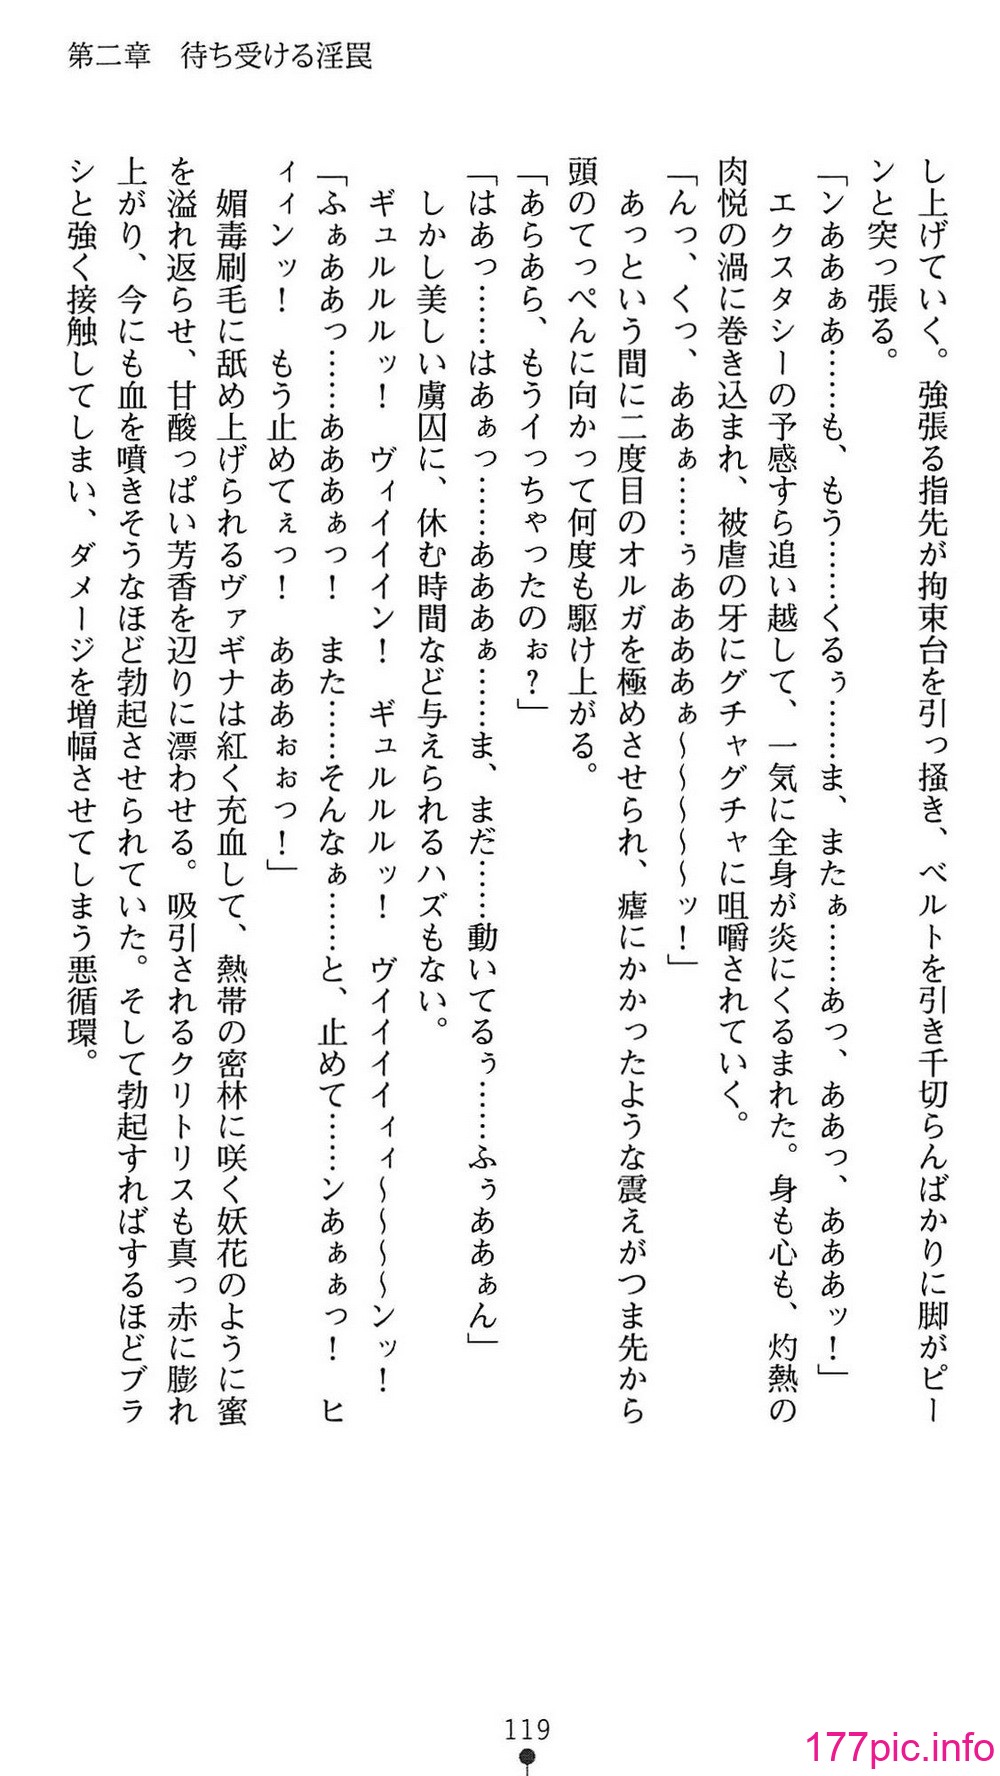 第二章　待ち受ける淫罠
し上げていく。強張る指先が拘束台を引っ掻き、ベルトを引き千切らんばかりに脚がピー
ンと突っ張る。
「ンああぁあ……も、もう……くるぅ……ま、またぁ……あっ、ああっ、あああッ！」
　エクスタシーの予感すら追い越して、一気に全身が炎にくるまれた。身も心も、灼熱の
肉悦の渦に巻き込まれ、被虐の牙にグチャグチャに咀嚼されていく。
「んっ、くっ、ああぁ……ぅああああぁ～～～～～ッ！」
　あっという間に二度目のオルガを極めさせられ、瘧にかかったような震えがつま先から
頭のてっぺんに向かって何度も駆け上がる。
「あらあら、もうイっちゃったのぉ？」
「はあっ……はあぁっ……あああぁ……ま、まだ……動いてるぅ……ふぅああぁん」
　しかし美しい虜囚に、休む時間など与えられるハズもない。
　ギュルルルッ！　ヴィイイイン！　ギュルルルッ！　ヴイイイイィィ～～～～ンッ！
「ふぁああっ……あああぁっ！　また……そんなぁ……と、止めて……ンあぁぁっ！　ヒ
ィィンッ！　もう止めてぇっ！　あああぉぉっ！」
　媚毒刷毛に舐め上げられるヴァギナは紅く充血して、熱帯の密林に咲く妖花のように蜜
を溢れ返らせ、甘酸っぱい芳香を辺りに漂わせる。吸引されるクリトリスも真っ赤に膨れ
上がり、今にも血を噴きそうなほど勃起させられていた。そして勃起すればするほどブラ
シと強く接触してしまい、ダメージを増幅させてしまう悪循環。
119
177pic.info